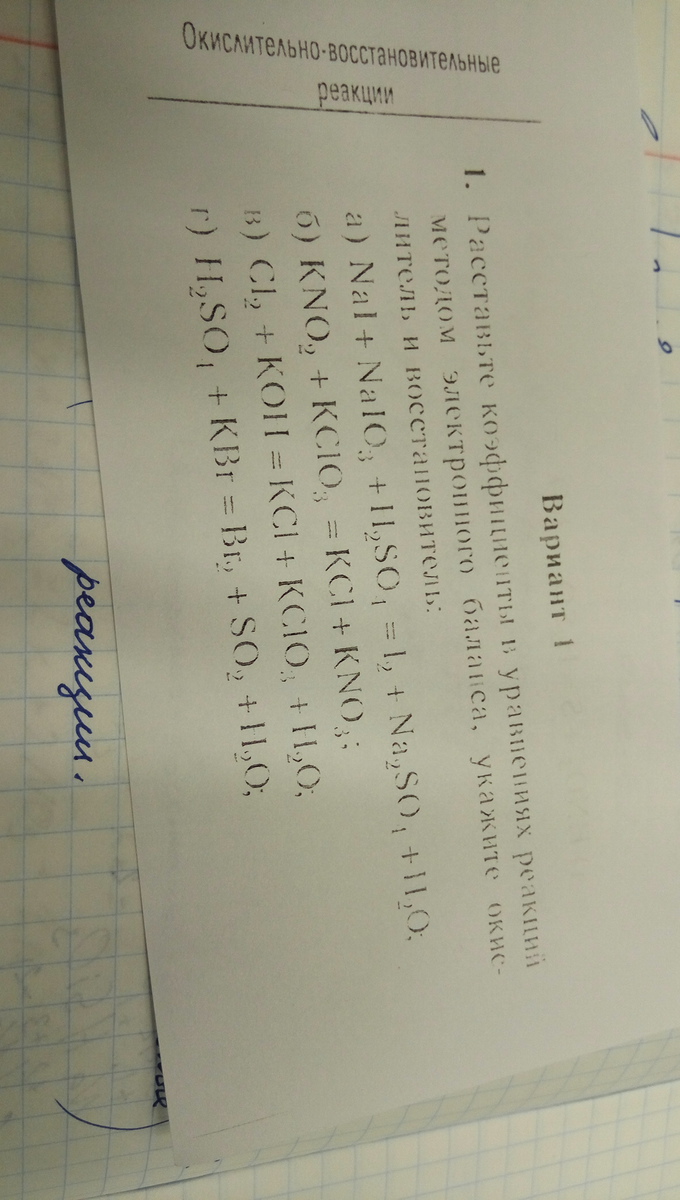 Окислительно-восстановительные
реакции
Вариант 1
1. Расставьте коэффициенты в уравнениях реакций
методом электронного баланса, укажите окис-
литель и восстановитель:
а) NaI + NaIO₃ + H₂SO₄ = I₂ + Na₂SO₄ + H₂O;
б) KNO₂ + KClO₃ = KCl + KNO₃;
в) Cl₂ + KOH = KCl + KClO₃ + H₂O;
г) H₂SO₄ + KBr = Br₂ + SO₂ + H₂O;
реакции.